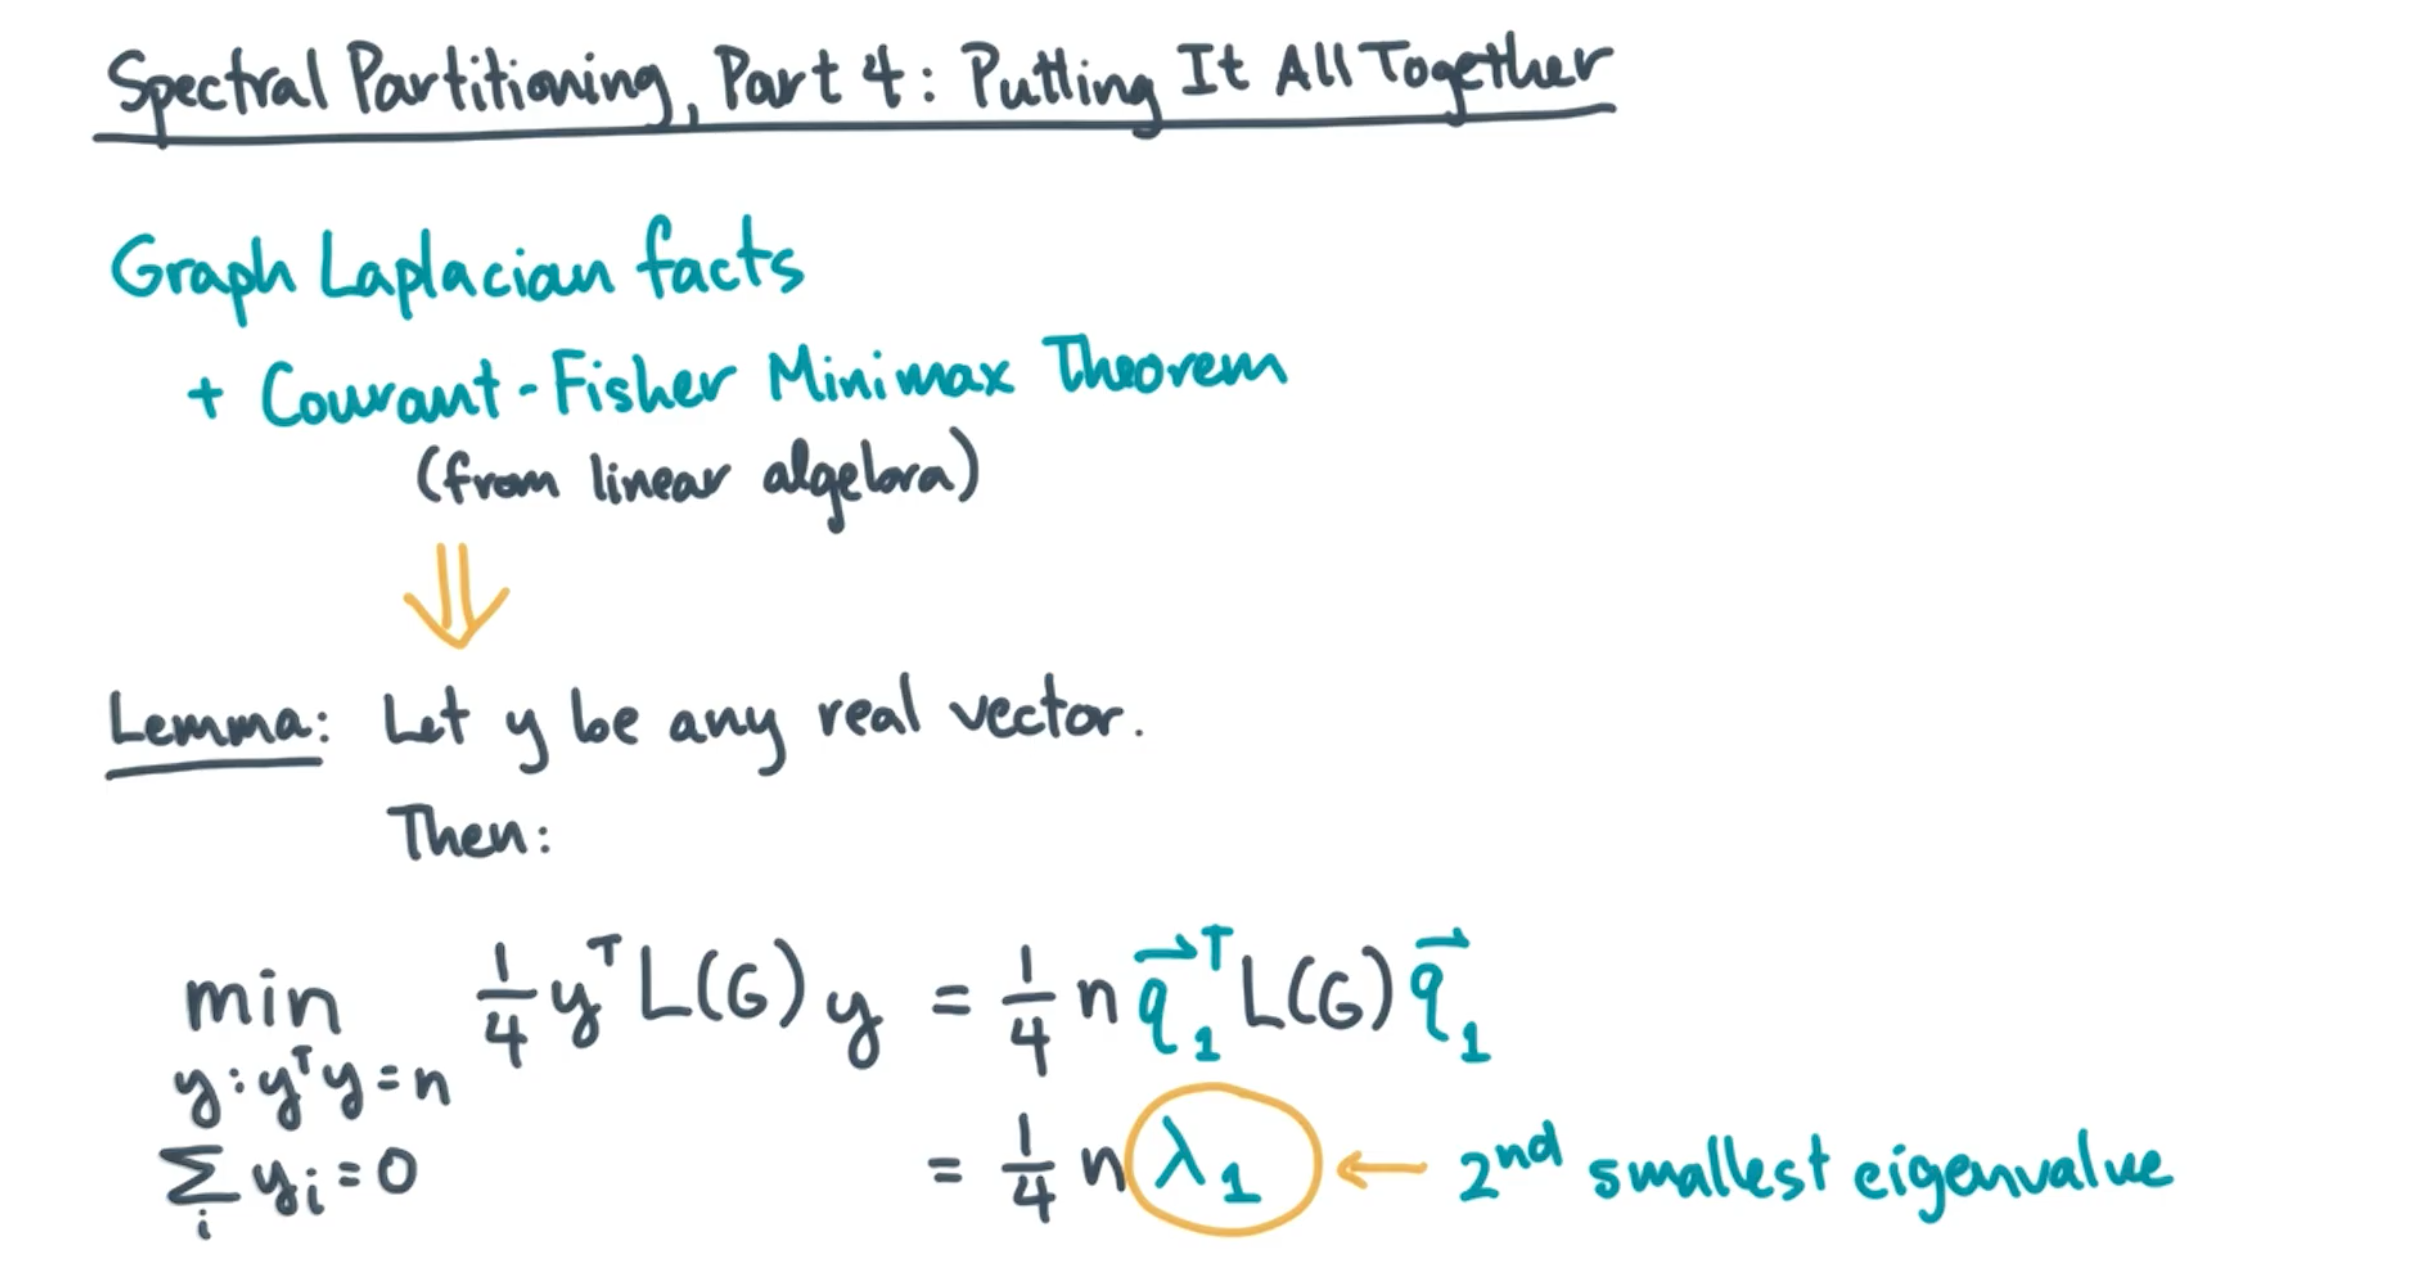 Spectral Partitioning, Part 4: Putting It All Together
Graph Laplacian facts
+ Courant-Fisher Minimax Theorem
(from linear algebra)
⇓
Lemma: Let y be any real vector.
Then:
min 1/4 yᵀ L(G) y = 1/4 n q⃗₁ᵀ L(G) q⃗₁
y: yᵀy = n
∑ᵢ yᵢ = 0 = 1/4 n λ₁ ← 2nd smallest eigenvalue